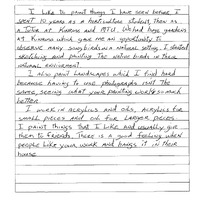 I like to paint things I have seen before. I
spent 10 years as a horticulture student, then as
a Tutor at Kurawa and MTU. We had huge gardens
at Kurawa which gave me an opportunity to
observe many songbirds in a natural setting. I started
sketching and painting the native birds in their
natural environment.
I also paint landscapes which I find hard
because having to use photographs isn't the
same, seeing what your painting works much
better
I work in acrylics and oils, acrylics for
small pieces and oils for larger pieces
I paint things that I like and usually give
them to friends. There is a good feeling when
people like your work and hangs it in their
house